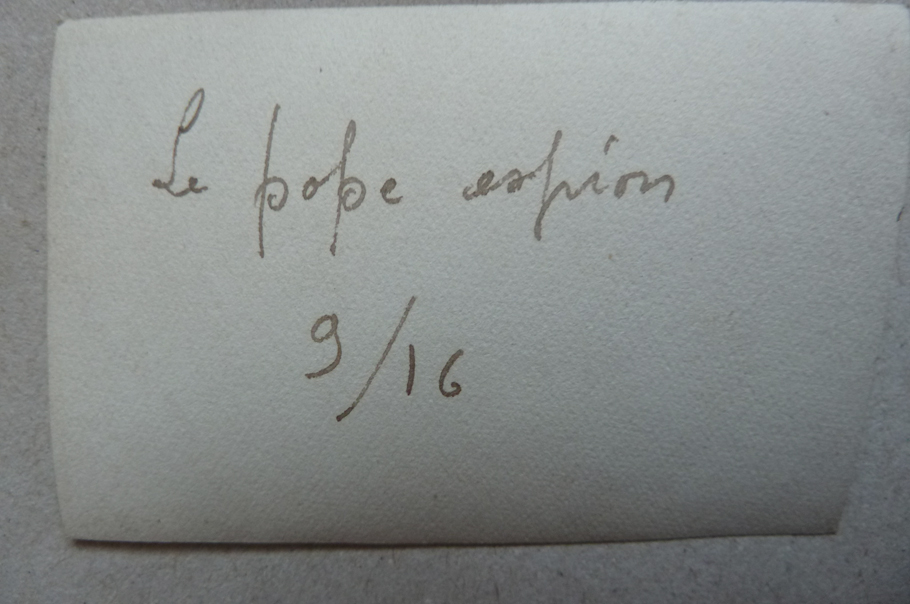 Le pope espion
9/16